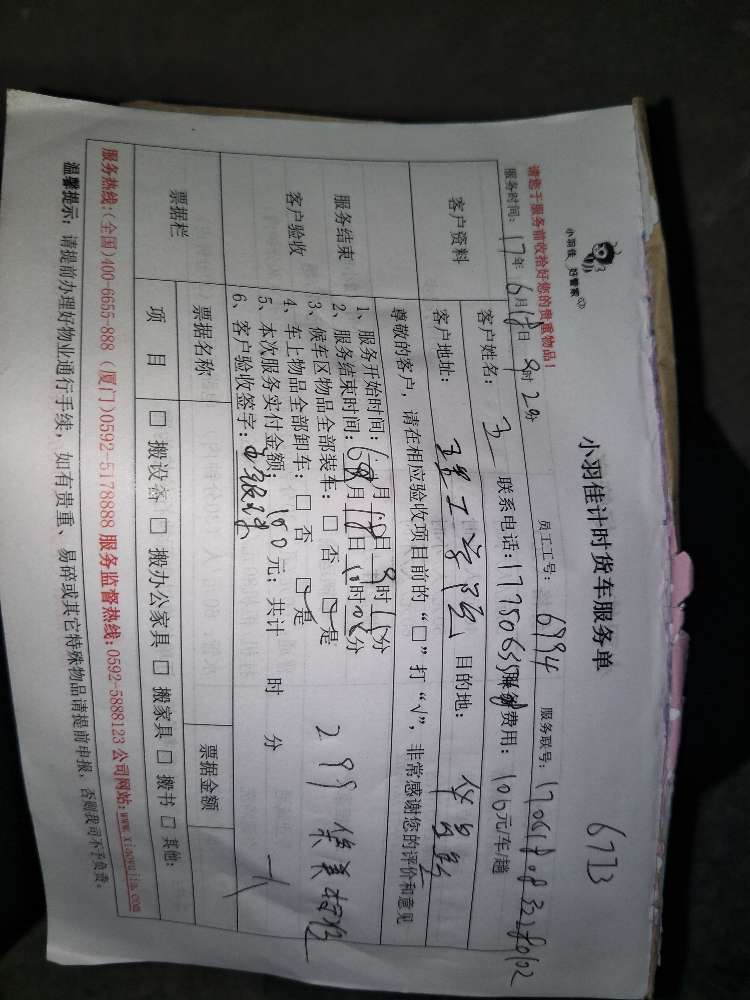 6773
小羽佳 好管家
小羽佳计时货车服务单
请您于服务前收拾好您的贵重物品！
服务时间：17年6月18日9时2分 员工工号：6994 服务联号：
客户资料
客户姓名：王 联系电话： 费用：100元/车/趟
客户地址：理工学院 目的地：
尊敬的客户，请在相应验收项目前的“□”打“√”，非常感谢您的评价和意见
服务结束
客户验收
1、服务开始时间：6月18日9时15分
2、服务结束时间：月18日时分
3、候车区物品全部装车：□ 否 □ 是
4、车上物品全部卸车：□ 否 □ 是
5、本次服务实付金额：100元；共计 时 分
6、客户验收签字：
299
票据栏
票据名称
票据金额
项 目 □ 搬设备 □ 搬办公家具 □ 搬家具 □ 搬书 □ 其他：
服务热线：(全国)400-6655-888 (厦门)0592-5178888 服务监督热线：0592-5888123 公司网站：www.xiaoyujia.com
温馨提示：请提前办理好物业通行手续，如有贵重、易碎或其它特殊物品请提前申报，否则我司不予负责。